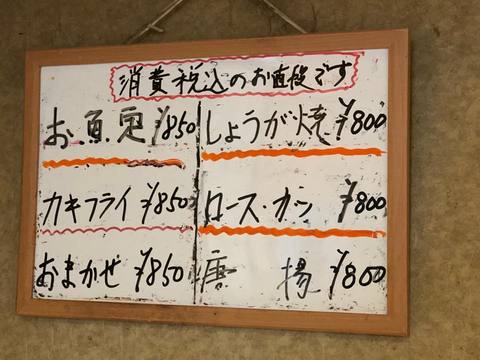 消費税込のお値段です
お魚定 ¥850
しょうが焼 ¥800
カキフライ ¥850
ロース・カツ ¥800
おまかせ ¥850
唐揚 ¥800